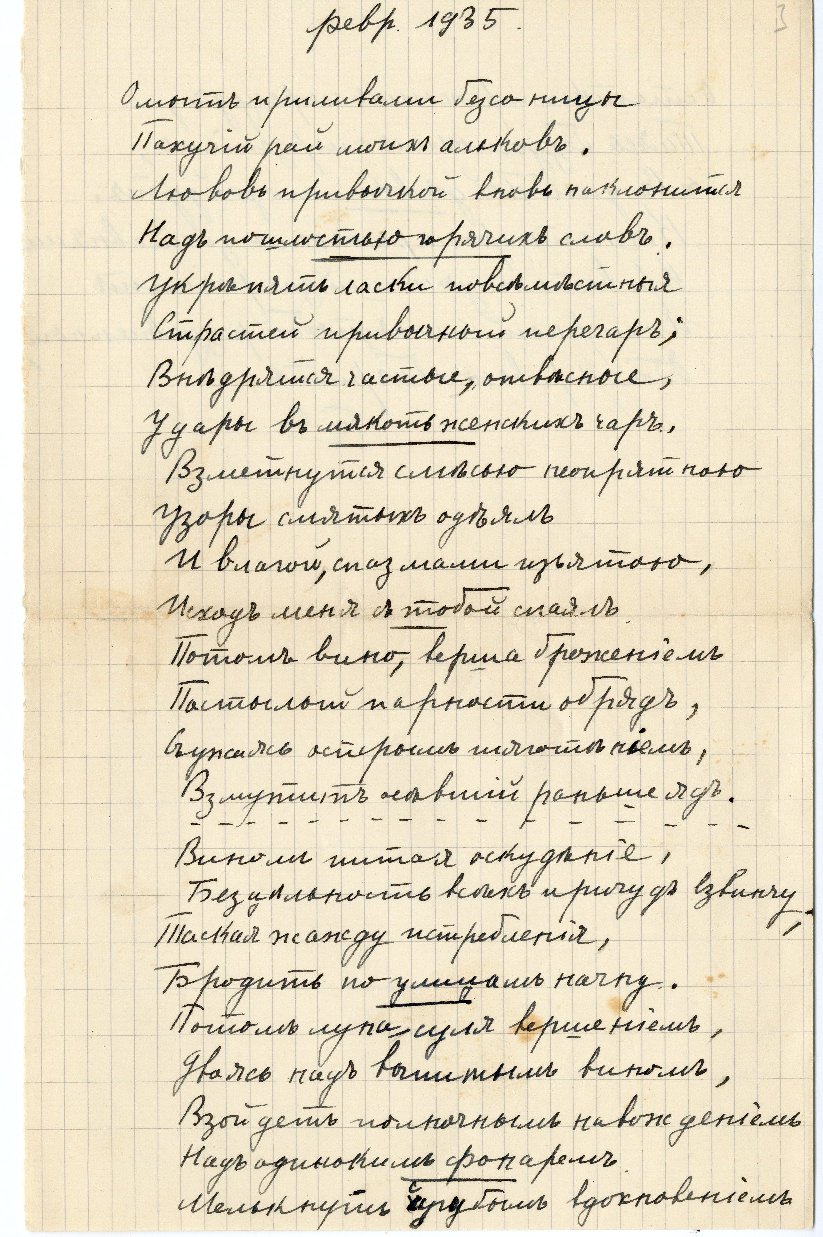 февр. 1935.
3
Омытъ приливами безсонницы
Пахучій рай моихъ альковъ.
Любовь привычкой вновь наклонится
Надъ пошлостью горячихъ словъ.
Укрѣпятъ ласки повсемѣстныя
Страстей привычный перегаръ;
Внѣдрятся частые, отвѣсные,
Удары въ мякоть женскихъ чаръ.
Взметнутся смѣсью неопрятною
Узоры смятыхъ одѣялъ
И влагой, спазмами изъятою,
Исходъ меня съ тобой спаялъ
Потомъ вино, верша броженіемъ
Постылый парности обрядъ,
Съужаясь острымъ тяготѣніемъ,
Взмутитъ осѣвшій раньше ядъ.
Виномъ питая оскудѣніе,
Безцѣльность всѣхъ причудъ взвинчу,
Таская жажду истребленія,
Бродить по улицамъ начну.
Потомъ луна, суля вершеніемъ,
Двоясь надъ выпитымъ виномъ,
Взойдетъ полночнымъ навожденіемъ
Надъ одинокимъ фонаремъ
Мелькнутъ грубымъ вдохновеніемъ